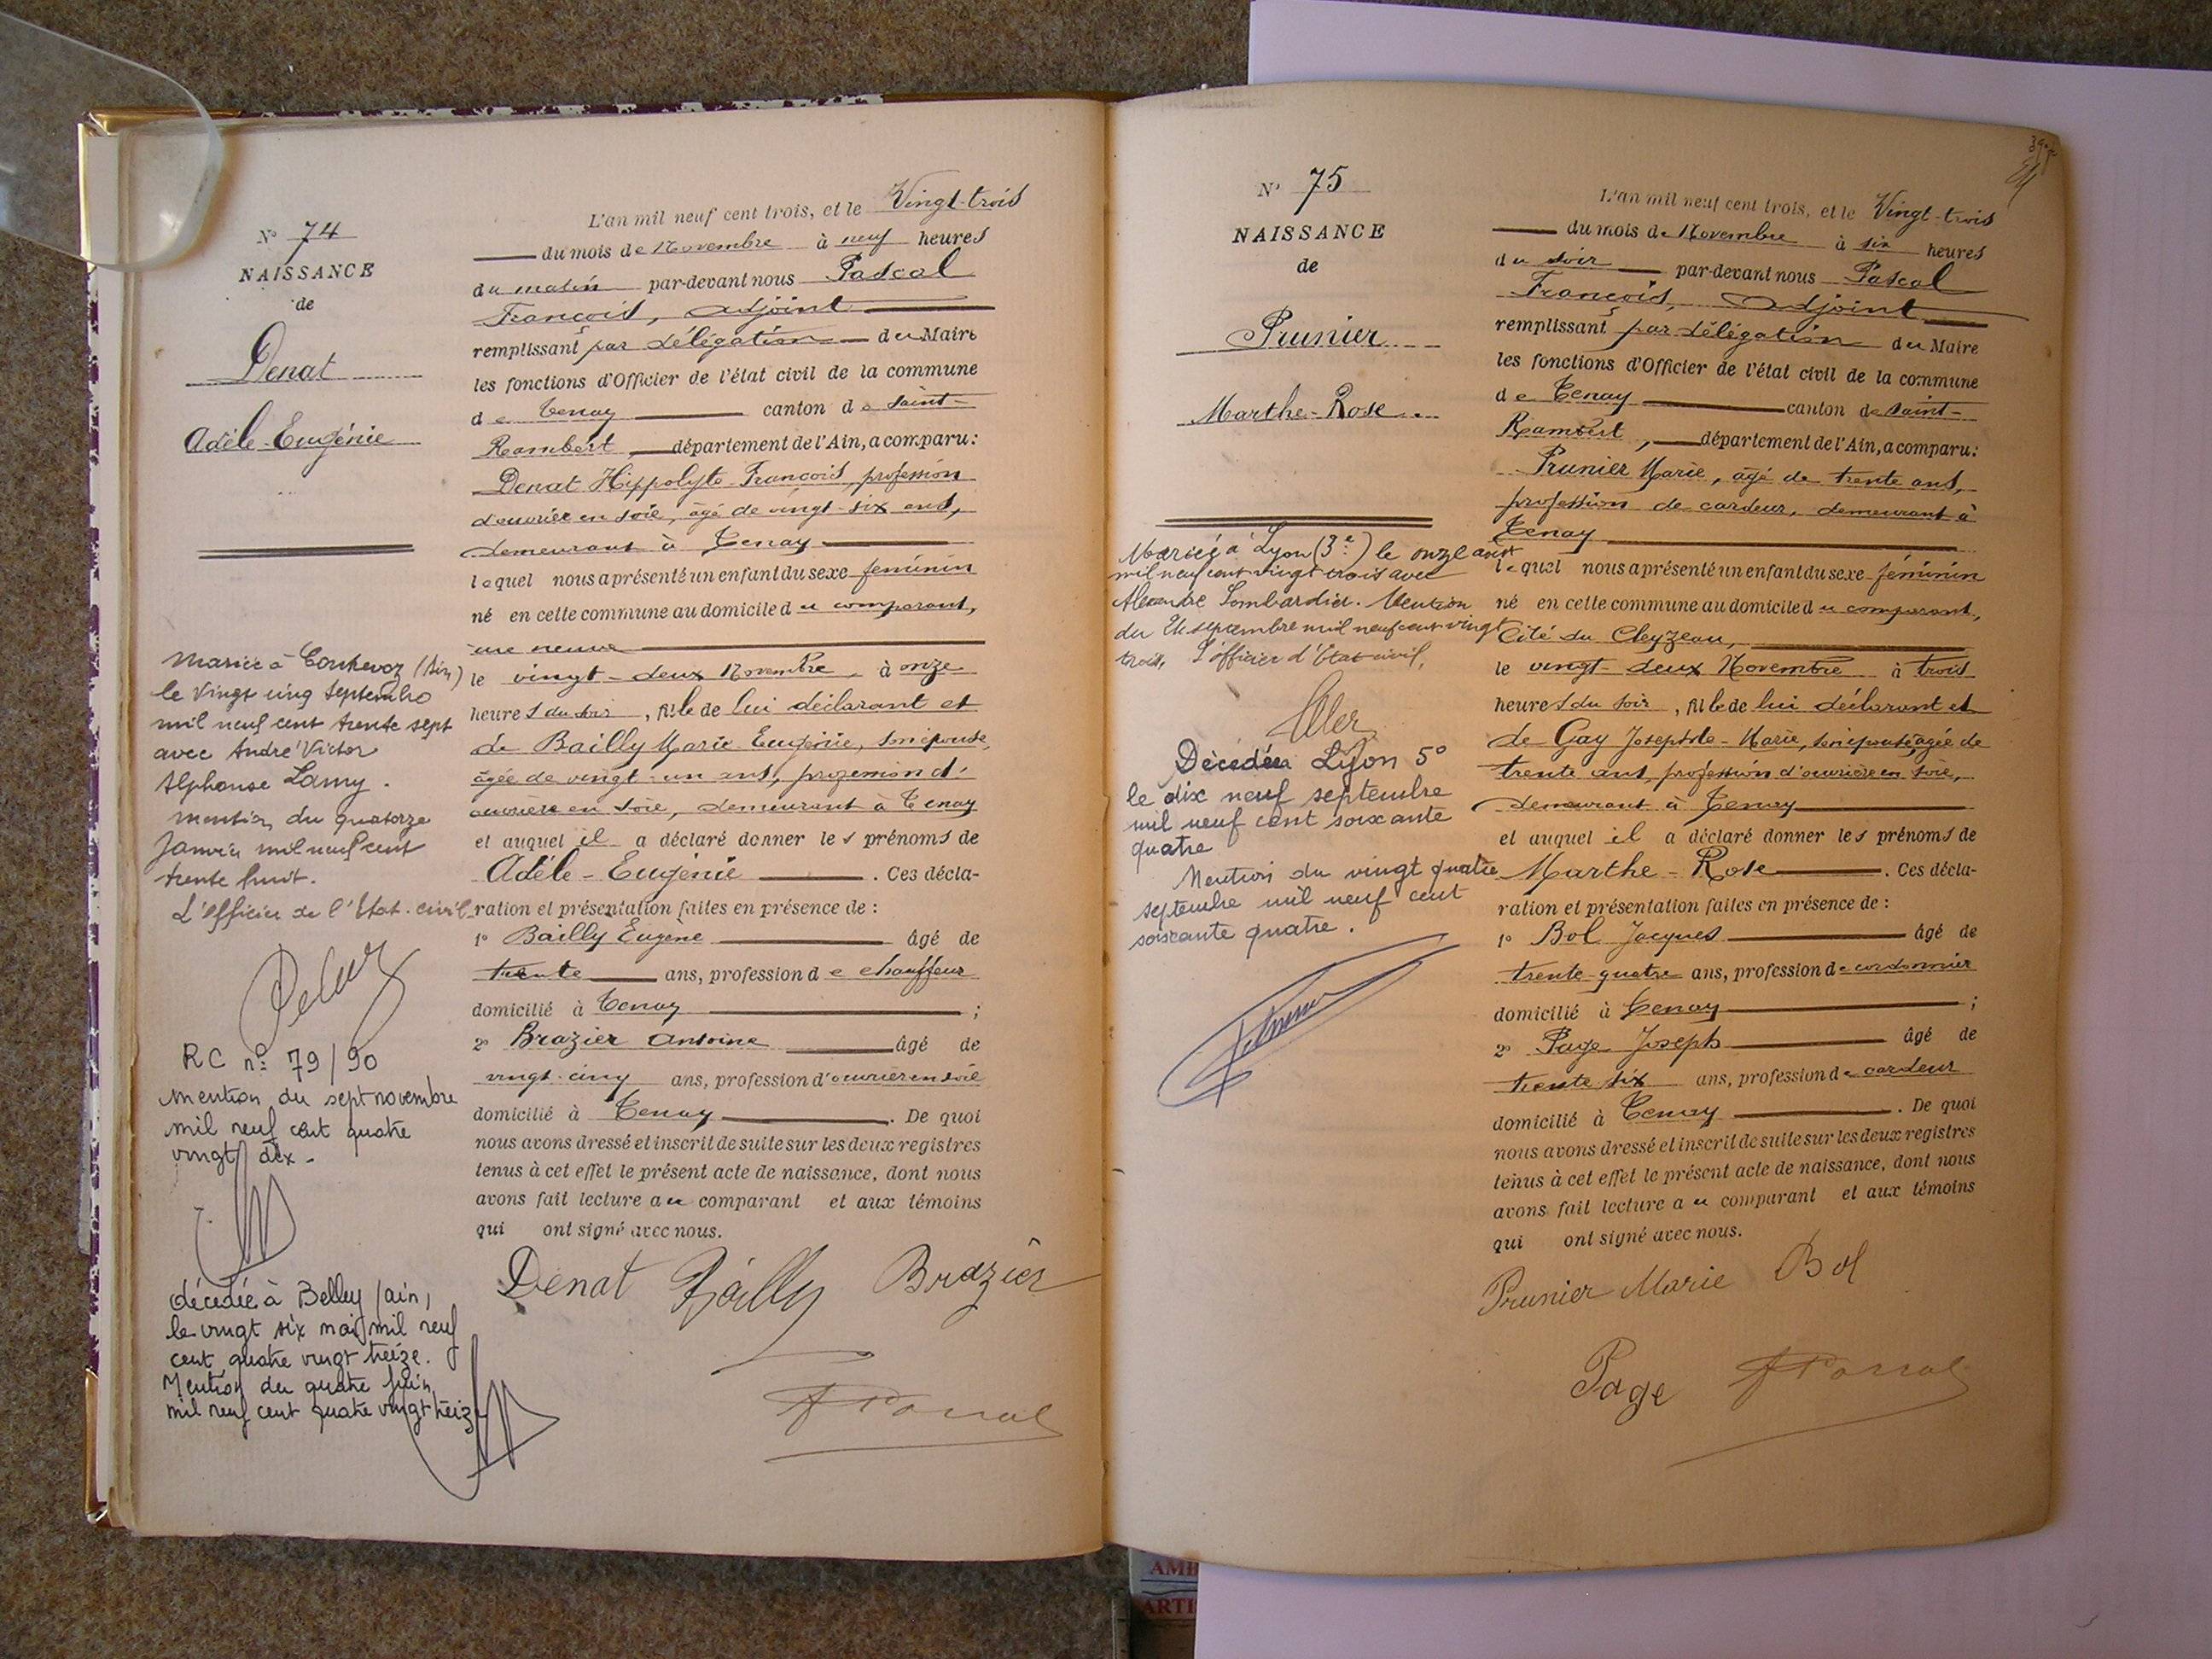 N° 74
NAISSANCE
de
Denat
Adèle-Eugénie
Mariée à (Ain)
le vingt cinq septembre
mil neuf cent trente sept
avec André Victor
Alphonse Lamy.
mention du quatorze
Janvier mil neuf cent
trente huit.
L'officier de l'Etat-civil
RC n° 79/90
Mention du sept novembre
mil neuf cent quatre
vingt dix -
décédée à Belley (ain)
le vingt six mai mil neuf
cent quatre vingt treize.
Mention du quatre juin
mil neuf cent quatre vingt treize
L'an mil neuf cent trois, et le Vingt-trois
du mois de Novembre à neuf heures
du matin par-devant nous Pascal
François, adjoint
remplissant par délégation du Maire
les fonctions d'Officier de l'état civil de la commune
de Tenay canton de Saint-
Rambert, département de l'Ain, a comparu:
Denat Hippolyte-François, profession
d'ouvrier en soie, âgé de vingt-six ans,
demeurant à Tenay
lequel nous a présenté un enfant du sexe féminin
né en cette commune au domicile du comparant,
rue neuve
le vingt-deux Novembre, à onze
heures du soir, fille de lui déclarant et
de Bailly Marie-Eugénie, son épouse,
âgée de vingt-un ans, profession d'
ouvrière en soie, demeurant à Tenay
et auquel il a déclaré donner les prénoms de
Adèle-Eugénie. Ces décla-
ration et présentation faites en présence de :
1° Bailly Eugène âgé de
trente ans, profession de chauffeur
domicilié à Tenay ;
2° Brazier Antoine âgé de
vingt-cinq ans, profession d'ouvrier en soie
domicilié à Tenay. De quoi
nous avons dressé et inscrit de suite sur les deux registres
tenus à cet effet le présent acte de naissance, dont nous
avons fait lecture au comparant et aux témoins
qui ont signé avec nous.
Denat Bailly Brazier
F Pascal
N° 75
NAISSANCE
de
Prunier
Marthe-Rose
Mariée à Lyon (3e) le onze août
mil neuf cent vingt trois avec
Alexandre Lombardier. Mention
du septembre mil neuf cent vingt
trois, L'officier d'Etat-civil,
Décédée à Lyon 5°
le dix neuf septembre
mil neuf cent soixante
quatre
Mention du vingt quatre
septembre mil neuf cent
soixante quatre.
L'an mil neuf cent trois, et le Vingt-trois
du mois de Novembre à six heures
du soir par-devant nous Pascal
François, Adjoint
remplissant par délégation du Maire
les fonctions d'Officier de l'état civil de la commune
de Tenay canton de Saint-
Rambert, département de l'Ain, a comparu:
Prunier Marie, âgé de trente ans,
profession de cardeur, demeurant à
Tenay
lequel nous a présenté un enfant du sexe féminin
né en cette commune au domicile du comparant,
Cité du Cleyzeau,
le vingt-deux Novembre à trois
heures du soir, fille de lui déclarant et
de Gay Josephte-Marie, son épouse, âgée de
trente ans, profession d'ouvrière en soie,
demeurant à Tenay
et auquel il a déclaré donner les prénoms de
Marthe-Rose. Ces décla-
ration et présentation faites en présence de :
1° Bol Jacques âgé de
trente-quatre ans, profession de cordonnier
domicilié à Tenay ;
2° Page Joseph âgé de
trente six ans, profession de cardeur
domicilié à Tenay. De quoi
nous avons dressé et inscrit de suite sur les deux registres
tenus à cet effet le présent acte de naissance, dont nous
avons fait lecture au comparant et aux témoins
qui ont signé avec nous.
Prunier Marie Bol
Page F Pascal